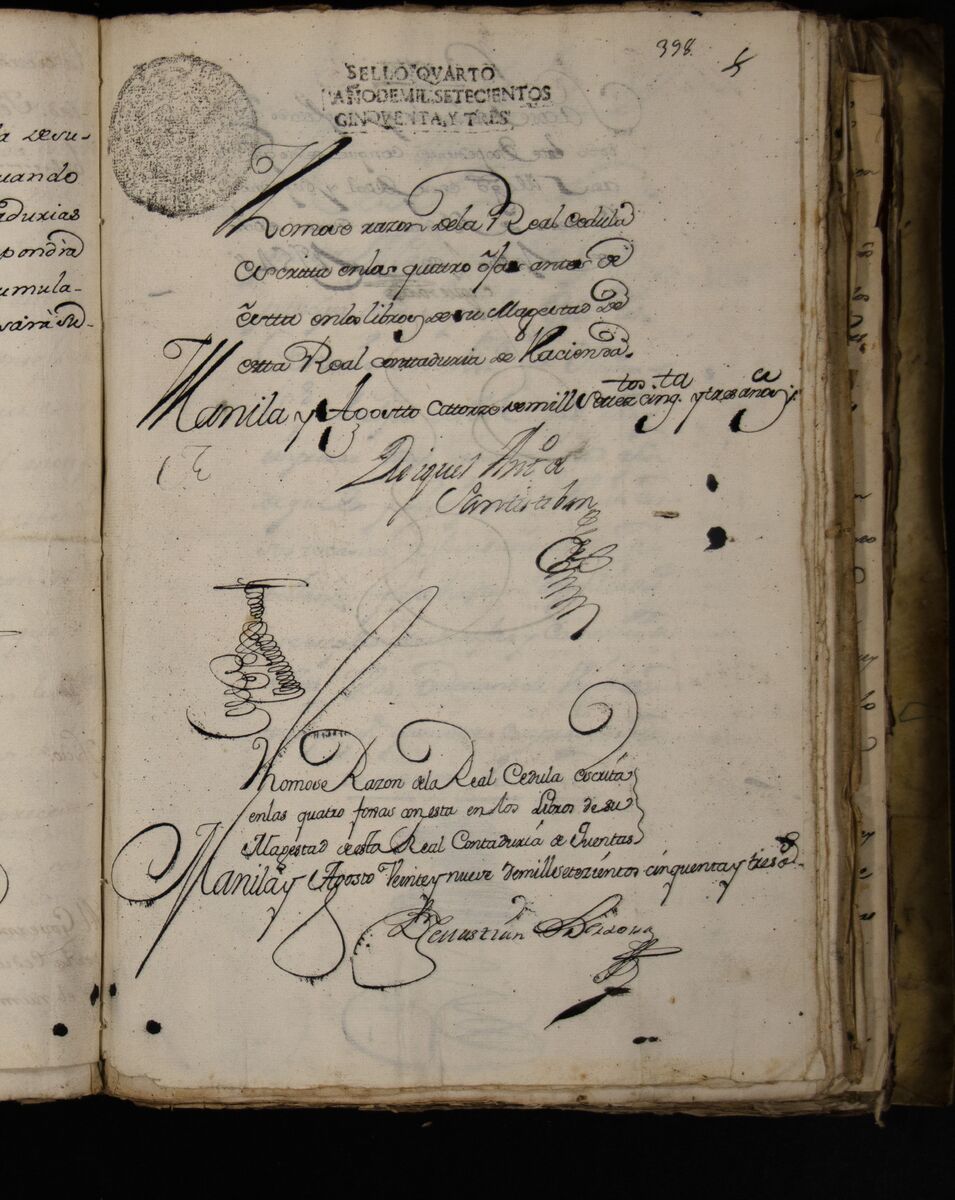 398.
SELLO QVARTO
AÑODEMIL SETECIENTOS
CINQVENTA, Y TRES
la desu-
uando
adurias
pondra
umula-
Thomose razon dela Real Cedula
escritta enlas quatro antes de
estta enlos libros de su Magestad De
estta Real contaduria de Hacienda.
Manila y Agostto Catorze demill Settez.tos cinq.ta y tres años
Miguel Ant.o de
Santisteban
Thomose Razon dela Real Cedula escrita
enlas quatro foxas con esta en los Libros de su
Magestad de esta Real Contaduria de Quentas
Manila, y Agosto Veinte y nueve demill setezientos cinquenta y tres
Sevastian